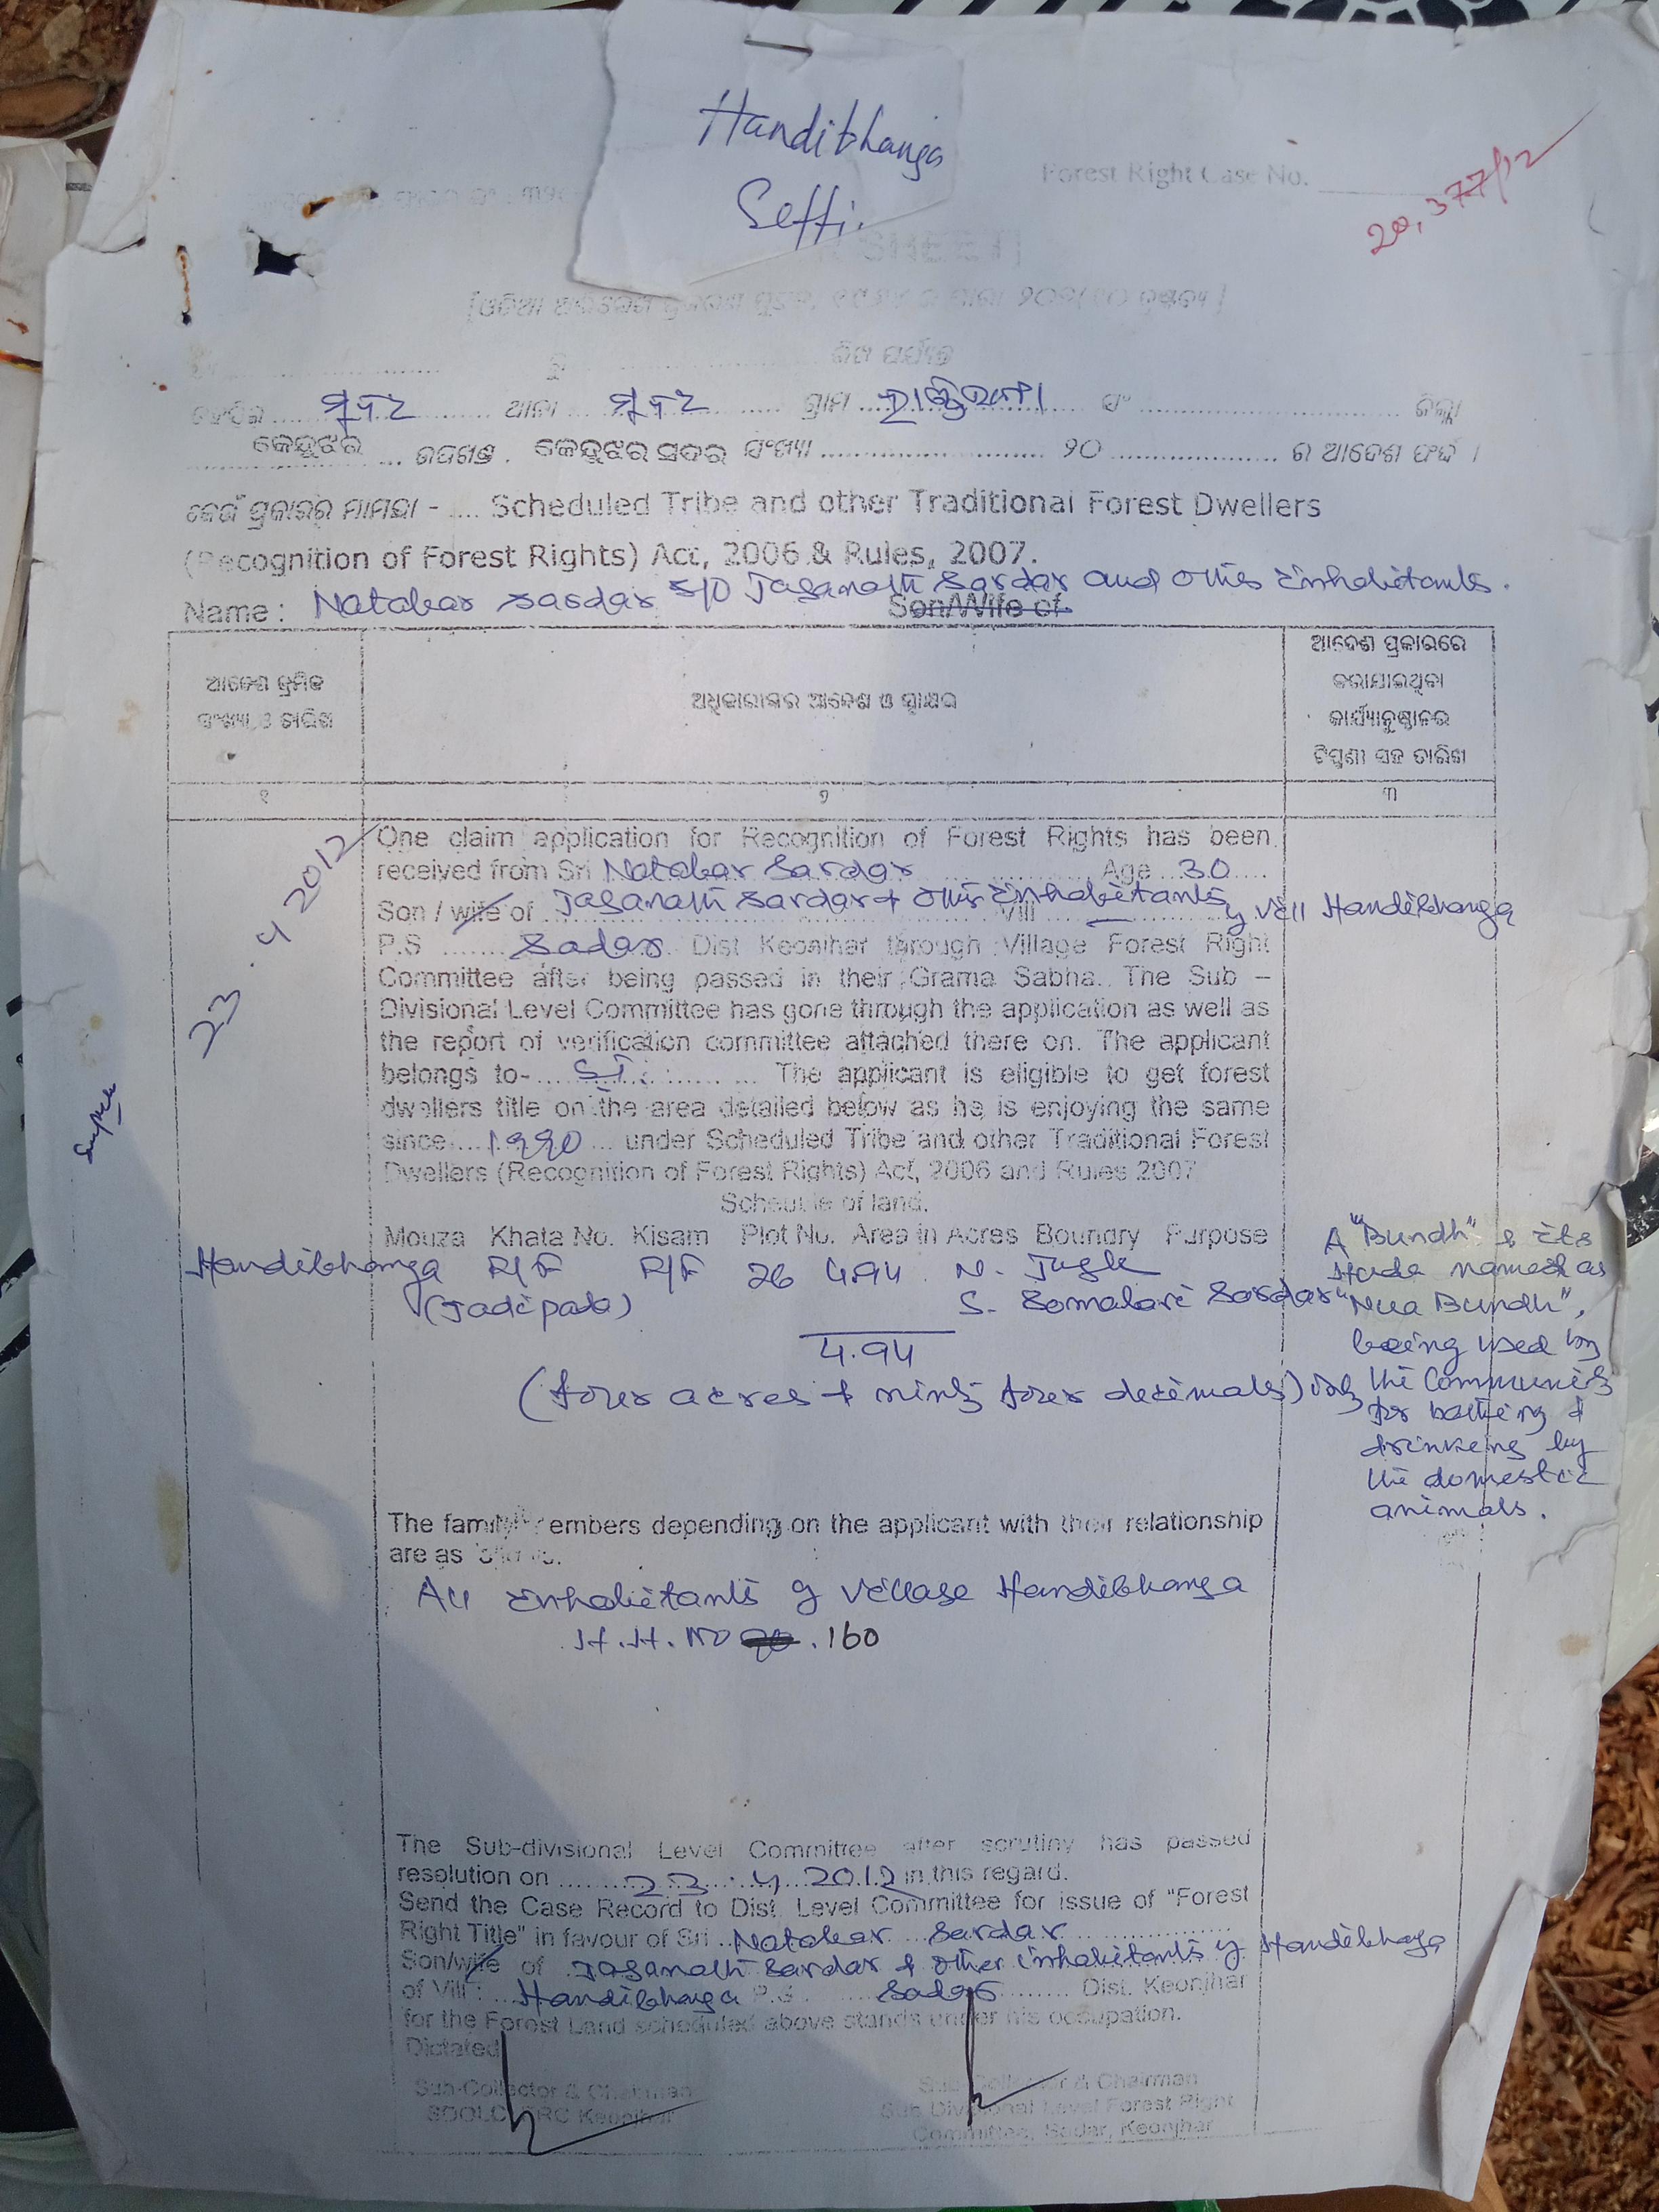 Handibhanga
Seffi.
Forest Right Case No.
20,377/12
SHEET]
ତହସିଲ ..... ସଦର ..... ଥାନା ..... ସଦର ..... ଗ୍ରାମ ..... ନଂ ..... ଜିଲ୍ଲା
କେନ୍ଦୁଝର ... ଉପଖଣ୍ଡ . କେନ୍ଦୁଝର ସଦର ସଂଖ୍ୟା ..... ୨୦ ..... ର ଆଦେଶ ଫର୍ଦ୍ଦ ।
କେଉଁ ପ୍ରକାରର ମାମଲା - .... Scheduled Tribe and other Traditional Forest Dwellers
(Recognition of Forest Rights) Act, 2006 & Rules, 2007.
Name : Natabar Sardar S/O Jaganath Sardar and others inhabitants.
Son/Wife of
ଆଦେଶ କ୍ରମିକ
ସଂଖ୍ୟା ଓ ତାରିଖ
ଅଧିକାରୀଙ୍କର ଆଦେଶ ଓ ସ୍ୱାକ୍ଷର
ଆଦେଶ ପ୍ରକାରରେ
କରାଯାଇଥିବା
କାର୍ଯ୍ୟାନୁଷ୍ଠାନର
ଟିପ୍ପଣୀ ସହ ତାରିଖ
୧ ୨ ୩
23.4.2012
One claim application for Recognition of Forest Rights has been
received from Sri Natabar Sardar Age 30
Son / wife of Jaganath Sardar + others inhabitants Vill of vill Handibhanga
P.S ....... Sadar Dist Keonjhar through Village Forest Right
Committee after being passed in their Grama Sabha. The Sub –
Divisional Level Committee has gone through the application as well as
the report of verification committee attached there on. The applicant
belongs to- ST. The applicant is eligible to get forest
dwellers title on the area detailed below as he is enjoying the same
since 1990 under Scheduled Tribe and other Traditional Forest
Dwellers (Recognition of Forest Rights) Act, 2006 and Rules 2007
Schedule of land.
Mouza Khata No. Kisam Plot No. Area in Acres Boundry Purpose
Handibhanga R/F R/F 26 4.94 N. Jugle
(Jadipada) S. Somabari Sardar
4.94
(four acres + ninty four decimals) only
A "Bundh" & its
Huda named as
"Nua Bundh",
being used by
the Community
for bathing &
drinking by
the domestic
animals.
The family members depending on the applicant with their relationship
are as follows.
All inhabitants of village Handibhanga
H.H. No . 160
The Sub-divisional Level Committee after scrutiny has passed
resolution on 23.4.2012 in this regard.
Send the Case Record to Dist. Level Committee for issue of "Forest
Right Title" in favour of Sri Natabar Sardar
Son/wife of Jaganath Sardar & other inhabitants of Handibhaga
of Vill : Handibhanga P.S. Sadar Dist. Keonjhar
for the Forest Land scheduled above stands under his occupation.
Dictated
Sub-Collector & Chairman
Keonjhar
Sub-Collector & Chairman
Sub Divisional Level Forest Right
Committee, Sadar, Keonjhar